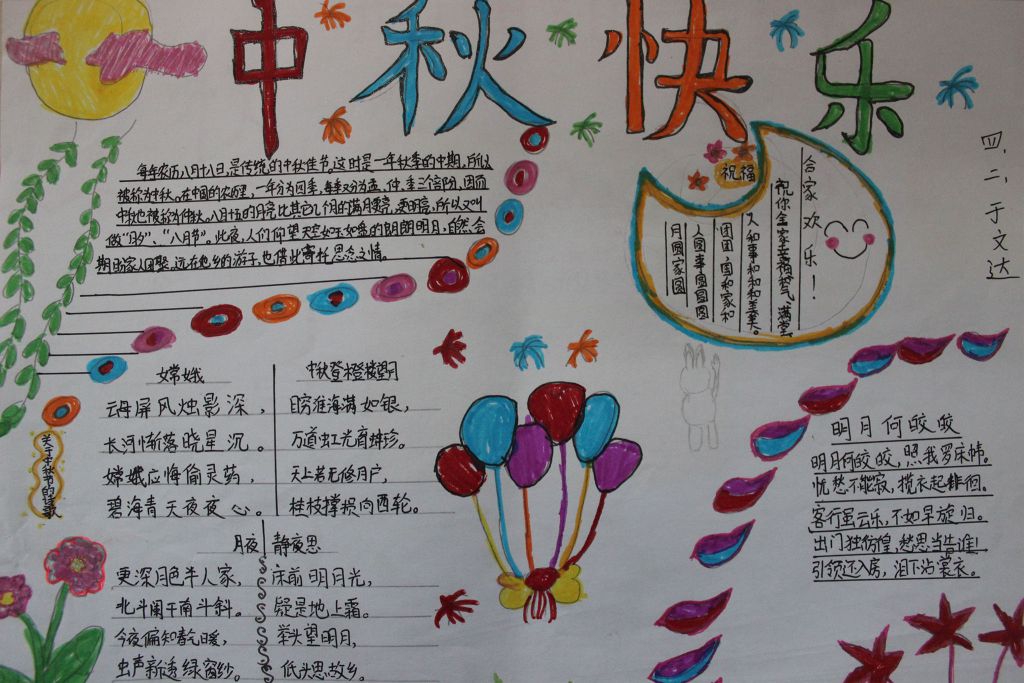 中秋快乐
四、二、于文达
每年农历八月十八日,是传统的中秋佳节。这时是一年秋季的中期,所以
被称为中秋。在中国的农历里,一年分为四季,每季又分为孟、仲、季三个部分,因而
中秋也被称为仲秋。八月十五的月亮比其它几个月的满月更亮,更明亮,所以又叫
做“月夕”、“八月节”。此夜,人们仰望天空如玉如盘的朗朗明月,自然会
期盼家人团聚,远在他乡的游子,也借此寄托思念之情。
祝福
合家欢乐!
祝你全家幸福和气、满堂
人和事和和和美美。
团团,国和家和
人圆事圆圆圆
月圆家圆
关于中秋节的诗歌
嫦娥
云母屏风烛影深,
长河惭落晓星沉。
嫦娥应悔偷灵药,
碧海青天夜夜心。
中秋登橙楼望月
目穷淮海满如银,
万道虹光育蛛珍。
天上若无修月户,
桂枝撑损向西轮。
月夜
更深月色半人家,
北斗阑干南斗斜。
今夜偏知春气暖,
虫声新透绿窗纱。
静夜思
床前明月光,
疑是地上霜。
举头望明月,
低头思故乡。
明月何皎皎
明月何皎皎,照我罗床帏。
忧愁不能寐,揽衣起徘徊。
客行虽云乐,不如早旋归。
出门独彷徨,愁思当告谁!
引领还入房,泪下沾裳衣。